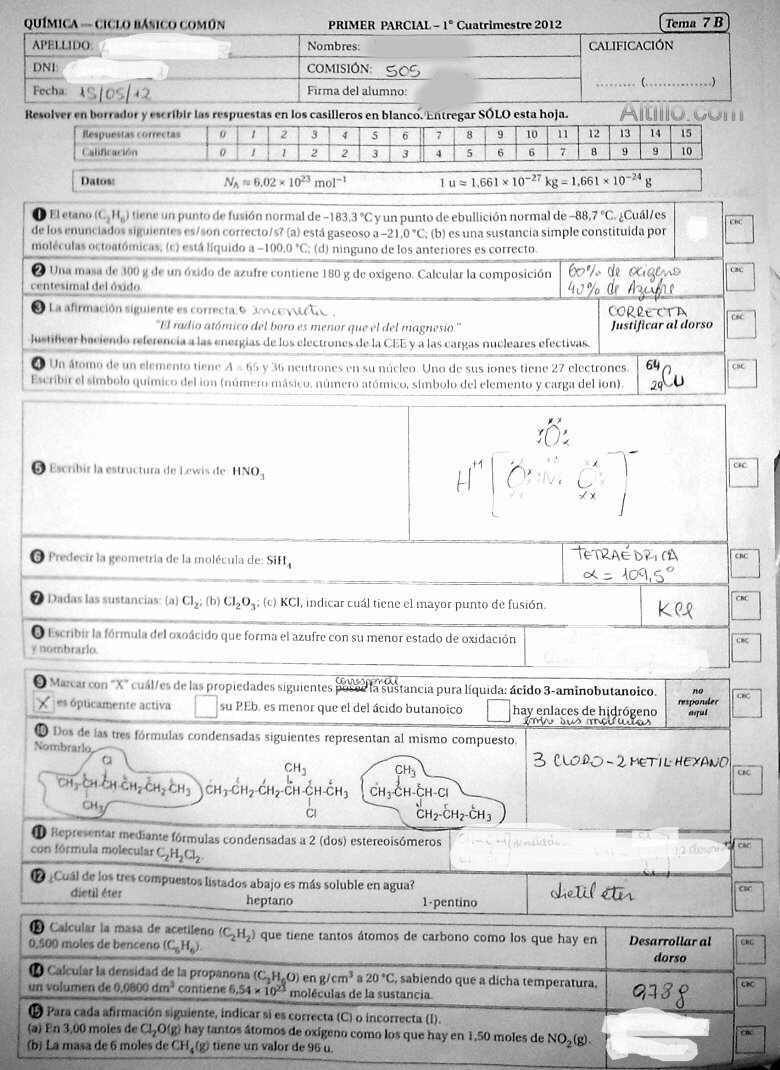 QUÍMICA — CICLO BÁSICO COMÚN PRIMER PARCIAL – 1° Cuatrimestre 2012 Tema 7 B
APELLIDO: Nombres: CALIFICACIÓN
DNI: COMISIÓN: 505
Fecha: 15/05/12 Firma del alumno: ......... (...............)
Resolver en borrador y escribir las respuestas en los casilleros en blanco. Entregar SÓLO esta hoja.
Altillo.com
Respuestas correctas 0 1 2 3 4 5 6 7 8 9 10 11 12 13 14 15
Calificación 0 1 1 2 2 3 3 4 5 6 6 7 8 9 9 10
Datos: N_A ≈ 6,02 × 10²³ mol⁻¹ 1 u ≈ 1,661 × 10⁻²⁷ kg = 1,661 × 10⁻²⁴ g
1 El etano (C₂H₆) tiene un punto de fusión normal de –183,3 °C y un punto de ebullición normal de –88,7 °C. ¿Cuál/es
de los enunciados siguientes es/son correcto/s? (a) está gaseoso a –21,0 °C; (b) es una sustancia simple constituida por
moléculas octoatómicas; (c) está líquido a –100,0 °C; (d) ninguno de los anteriores es correcto.
CBC
2 Una masa de 300 g de un óxido de azufre contiene 180 g de oxígeno. Calcular la composición
centesimal del óxido.
60% de oxigeno
40% de Azufre
CBC
3 La afirmación siguiente es correcta o incorrecta.
"El radio atómico del boro es menor que el del magnesio."
Justificar haciendo referencia a las energías de los electrones de la CEE y a las cargas nucleares efectivas.
CORRECTA
Justificar al dorso
CBC
4 Un átomo de un elemento tiene A = 65 y 36 neutrones en su núcleo. Uno de sus iones tiene 27 electrones.
Escribir el símbolo químico del ion (número másico, número atómico, símbolo del elemento y carga del ion).
64
29 Cu
CBC
5 Escribir la estructura de Lewis de HNO₃
O
H⁺¹ [O N O]⁻
CBC
6 Predecir la geometría de la molécula de: SiH₄
TETRAÉDRICA
α = 109,5°
CBC
7 Dadas las sustancias: (a) Cl₂; (b) Cl₂O₃; (c) KCl, indicar cuál tiene el mayor punto de fusión.
KCl
CBC
8 Escribir la fórmula del oxoácido que forma el azufre con su menor estado de oxidación
y nombrarlo.
CBC
9 Marcar con "X" cuál/es de las propiedades siguientes posee corresponde la sustancia pura líquida: ácido 3-aminobutanoico.
X es ópticamente activa su P.Eb. es menor que el del ácido butanoico hay enlaces de hidrógeno
entre sus moléculas
no
responder
aquí
CBC
10 Dos de las tres fórmulas condensadas siguientes representan al mismo compuesto.
Nombrarlo.
Cl
CH₃-CH-CH-CH₂-CH₂-CH₃
CH₃
CH₃
CH₃-CH₂-CH₂-CH-CH-CH₃
Cl
CH₃
CH₃-CH-CH-Cl
CH₂-CH₂-CH₃
3 CLORO-2 METIL-HEXANO
CBC
11 Representar mediante fórmulas condensadas a 2 (dos) estereoisómeros
con fórmula molecular C₂H₂Cl₂.
CBC
12 ¿Cuál de los tres compuestos listados abajo es más soluble en agua?
dietil éter heptano 1-pentino
dietil éter
CBC
13 Calcular la masa de acetileno (C₂H₂) que tiene tantos átomos de carbono como los que hay en
0,500 moles de benceno (C₆H₆).
Desarrollar al
dorso
CBC
14 Calcular la densidad de la propanona (C₃H₆O) en g/cm³ a 20 °C, sabiendo que a dicha temperatura,
un volumen de 0,0800 dm³ contiene 6,54 × 10²³ moléculas de la sustancia.
0,78 g
CBC
15 Para cada afirmación siguiente, indicar si es correcta (C) o incorrecta (I).
(a) En 3,00 moles de Cl₂O(g) hay tantos átomos de oxígeno como los que hay en 1,50 moles de NO₂(g).
(b) La masa de 6 moles de CH₄(g) tiene un valor de 96 u.
CBC